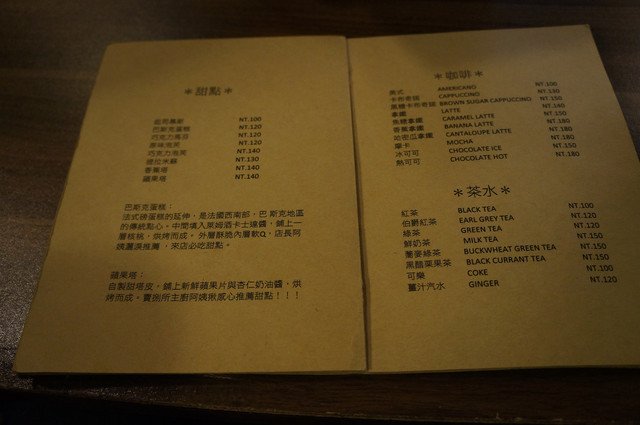 ＊甜點＊
起司慕斯 NT.100
巴斯克蛋糕 NT.120
巧克力馬芬 NT.120
原味泡芙 NT.120
巧克力泡芙 NT.140
提拉米蘇 NT.130
香蕉塔 NT.140
蘋果塔 NT.140
巴斯克蛋糕：
法式磅蛋糕的延伸，是法國西南部，巴斯克地區
的傳統點心。中間填入萊姆酒卡士達醬，鋪上一
層核桃，烘烤而成。外層酥脆內層軟Q，店長阿
姨邋淚推薦，來店必吃甜點。
蘋果塔：
自製甜塔皮，鋪上新鮮蘋果片與杏仁奶油醬，烘
烤而成。賣捌所主廚阿姨揪感心推薦甜點！！！
＊咖啡＊
美式 AMERICANO NT.100
卡布奇諾 CAPPUCCINO NT.130
黑糖卡布奇諾 BROWN SUGAR CAPPUCCINO NT.150
拿鐵 LATTE NT.140
焦糖拿鐵 CARAMEL LATTE NT.150
香蕉拿鐵 BANANA LATTE NT.180
哈密瓜拿鐵 CANTALOUPE LATTE NT.180
摩卡 MOCHA NT.180
冰可可 CHOCOLATE ICE NT.150
熱可可 CHOCOLATE HOT NT.180
＊茶水＊
紅茶 BLACK TEA NT.100
伯爵紅茶 EARL GREY TEA NT.120
綠茶 GREEN TEA NT.120
鮮奶茶 MILK TEA NT.150
蕎麥綠茶 BUCKWHEAT GREEN TEA NT.120
黑醋栗果茶 BLACK CURRANT TEA NT.150
可樂 COKE NT.100
薑汁汽水 GINGER NT.120